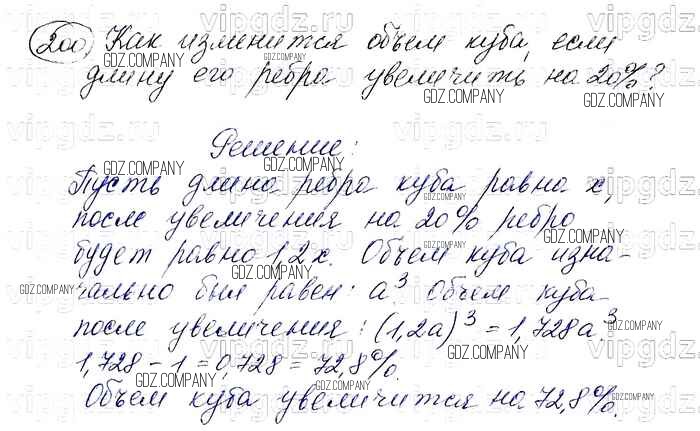 200. Как изменится объем куба, если
длину его ребра увеличить на 20%?
Решение:
Пусть длина ребра куба равна x,
после увеличения на 20% ребро
будет равно 1,2x. Объем куба изна-
чально был равен: a³. Объем куба
после увеличения: (1,2a)³ = 1,728a³.
1,728 - 1 = 0,728 = 72,8%.
Объем куба увеличится на 72,8%.
GDZ.COMPANY
vipgdz.ru